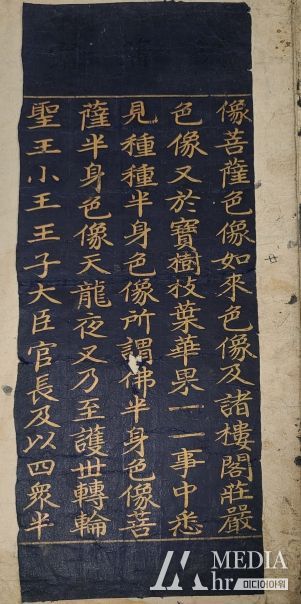 像菩薩色像如來色像及諸樓閣莊嚴
色像又於寶樹枝葉華果一一事中悉
見種種半身色像所謂佛半身色像菩
薩半身色像天龍夜叉乃至護世轉輪
聖王小王王子大臣官長及以四衆半
MEDIA
hr 미디어아워